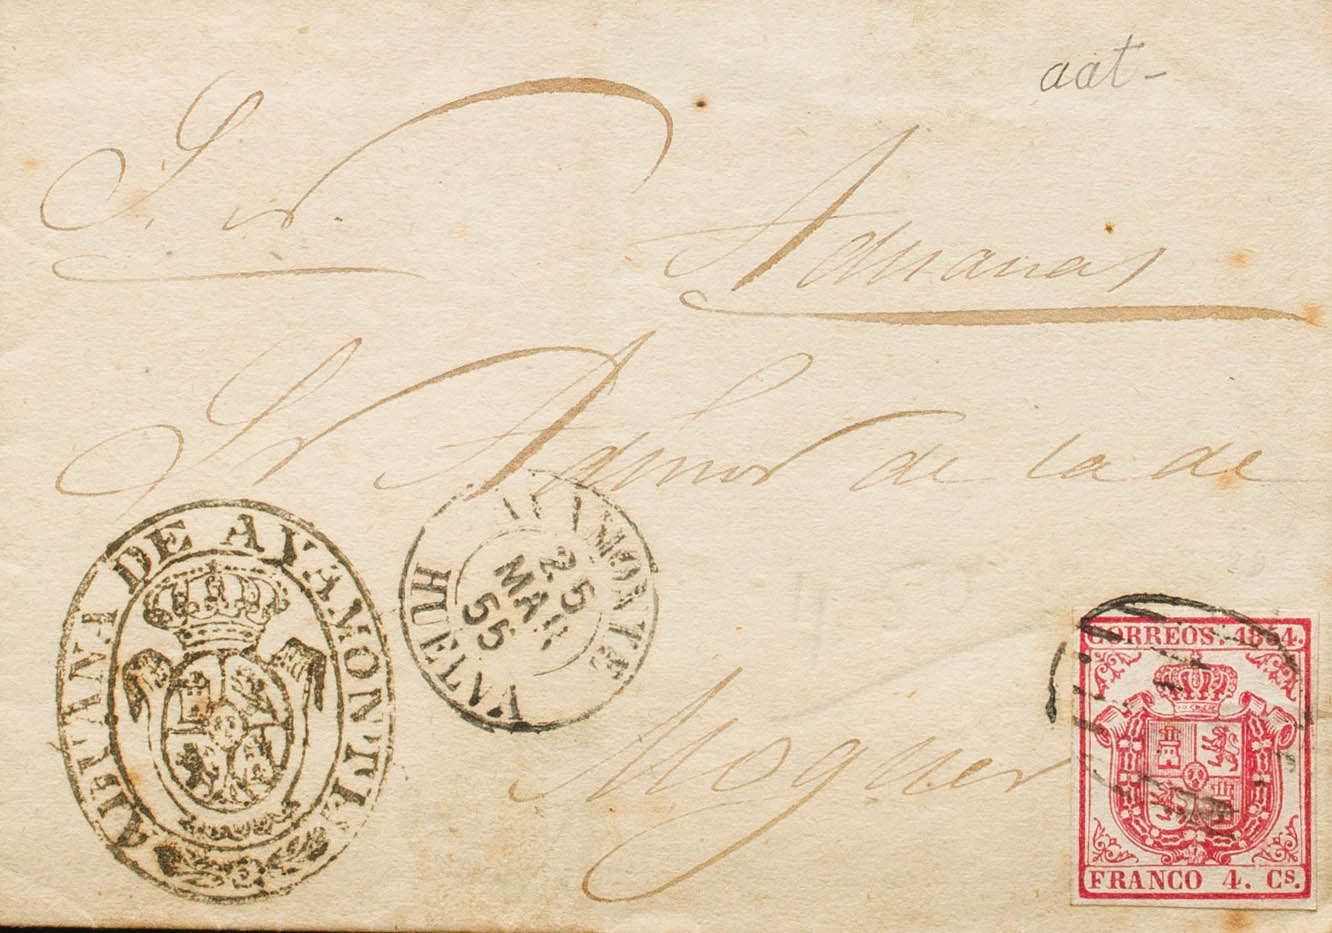 aat-
S. N.
Aduanas
Sr Admor de la de
Moguer
ADUANA DE AYAMONTE
AYAMONTE
25
MAR
55
HUELVA
CORREOS. 1854.
FRANCO 4. Cs.